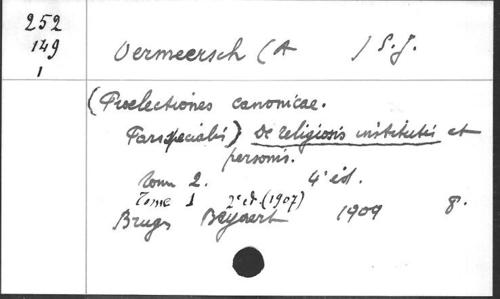 252
149
1
Vermeersch (A ) S.J.
(Praelectiones canonicae.
Pars specialis) De religiosis institutis et
personis.
tom 2. 4e éd.
Tome 1 2e éd. (1907)
Bruges Beyaert 1909 8.